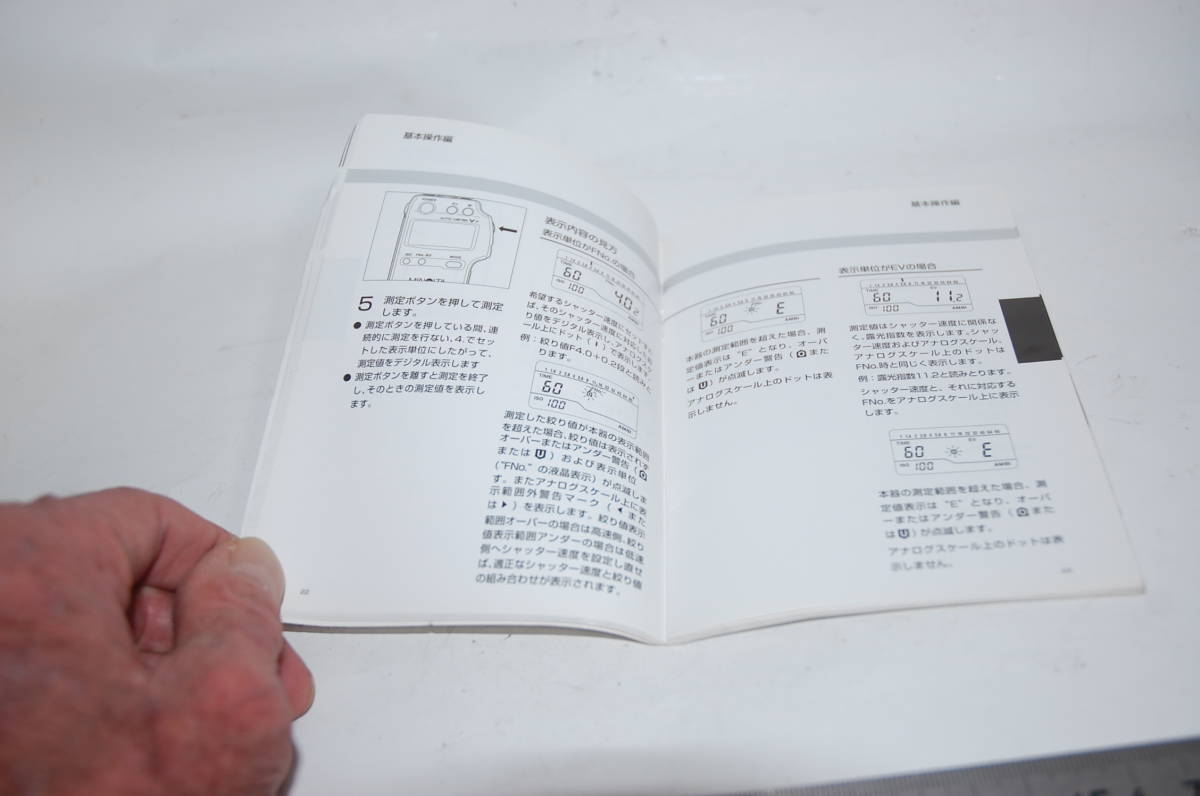 基本操作編
5 測定ボタンを押して測定
します。
● 測定ボタンを押している間、連
続的に測定を行ない、4.でセッ
トした表示単位にしたがって、
測定値をデジタル表示します
● 測定ボタンを離すと測定を終了
し、そのときの測定値を表示し
ます。
22
表示内容の見方
表示単位がFNo.の場合
TIME
60 4.0₂
ISO 100
希望するシャッター速度に
ば、そのシャッター速度に対応する
り値をデジタル表示し、アナログスケ
ール上にドット
で表示します。
例：絞り値F4.0+0.2段と読みと
ります。
TIME
60
ISO 100 AMBI
測定した絞り値が本器の表示範囲
を超えた場合、絞り値は表示されず
オーバーまたはアンダー警告（O
またはU）および表示単位
（"FNo."の液晶表示）が点滅しま
す。またアナログスケール上に表
示範囲外警告マーク（◀また
は▶）を表示します。絞り値表示
範囲オーバーの場合は高速側、絞り
値表示範囲アンダーの場合は低速
側へシャッター速度を設定し直せ
ば、適正なシャッター速度と絞り値
の組み合わせが表示されます。
基本操作編
TIME
60 E
ISO 100 AMBI
本器の測定範囲を超えた場合、測
定値表示は "E" となり、オーバ
ーまたはアンダー警告（Oまた
はU）が点滅します。
アナログスケール上のドットは表
示しません。
表示単位がEVの場合
TIME EV
60 11.2
ISO 100 AMBI
測定値はシャッター速度に関係な
く、露光指数を表示します。シャッ
ター速度およびアナログスケール、
アナログスケール上のドットは
FNo.時と同じく表示します。
例：露光指数11.2と読みとります。
シャッター速度と、それに対応する
FNo.をアナログスケール上に表示
します。
TIME EV
60 E
ISO 100 AMBI
本器の測定範囲を超えた場合、測
定値表示は "E" となり、オーバ
ーまたはアンダー警告（Oまた
はU）が点滅します。
アナログスケール上のドットは表
示しません。